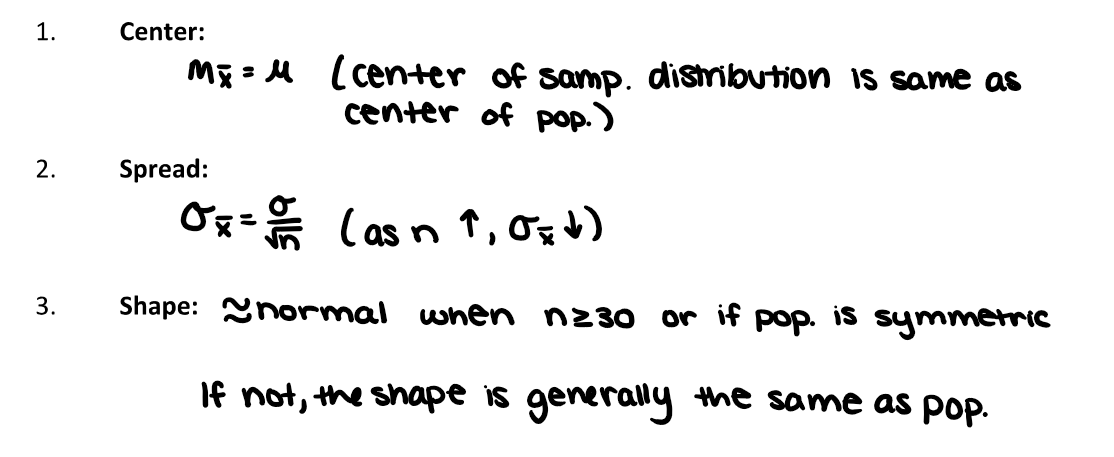 1. Center:
μx̄ = μ (center of samp. distribution is same as
center of pop.)
2. Spread:
σx̄ = σ/√n (as n ↑, σx̄ ↓)
3. Shape: ≈normal when n≥30 or if pop. is symmetric
If not, the shape is generally the same as pop.